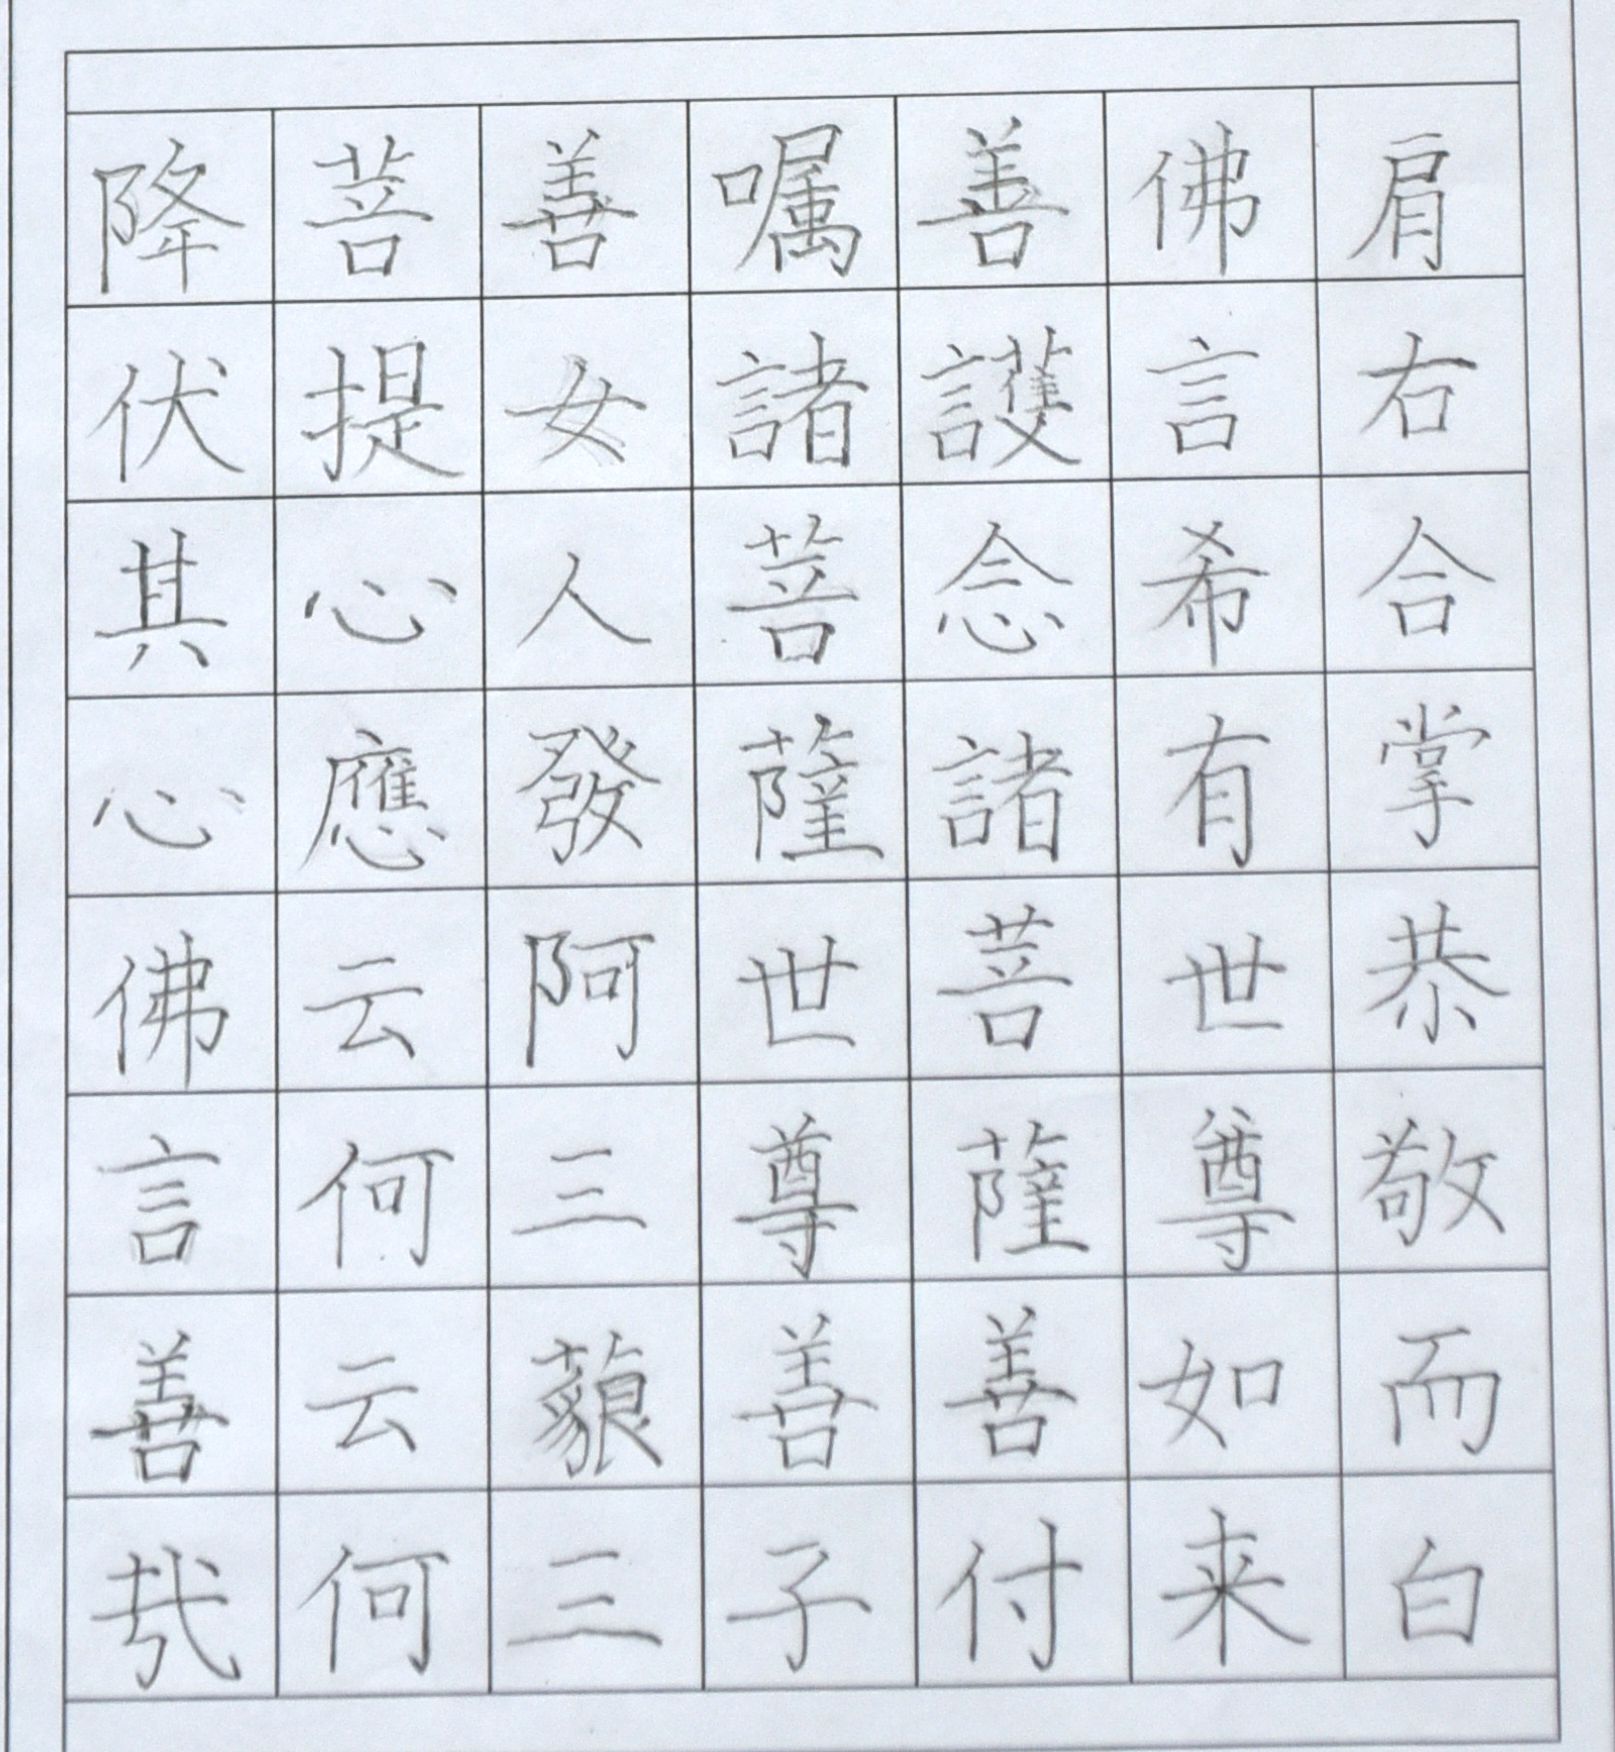 肩右合掌恭敬而白
佛言希有世尊如来
善護念諸菩薩善付
嘱諸菩薩世尊善子
善女人發阿三藐三
菩提心應云何云何
降伏其心佛言善